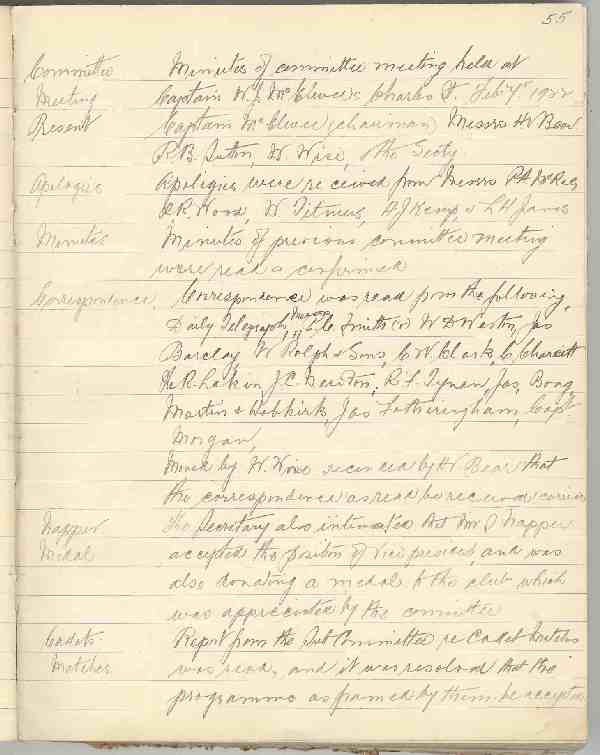 55
Committee Minutes of committee meeting held at
Meeting Captain W. J. McElwee's Charles St. Feb 7th 1922
Present Captain McElwee (chairman) Messrs W Bear
R. B. Sutton, W. Wise, & the Secty.
Apologies Apologies were received from Messrs McRae
R. Wood, W Titmus, A J Kemp, & L H James
Minutes Minutes of previous committee meeting
were read & confirmed
Correspondence Correspondence was read from the following,
Daily Telegraph, Messrs Smith W D Weston, Jas
Barclay W Rolph & Sons, C W Clark, C
R. Lakin J. C. R. L. Tynan, Jas, Boag,
Martin & Hobkirk, Jas Fotheringham, Capt
Morgan,
Moved by W. Wise seconded by W Bear that
the correspondence as read be received carried
Napper The Secretary also intimated that Mr Napper
Medal accepted the position of vice president, and was
also donating a medal to the club which
was appreciated by the committee
Cadets Report from the Sub Committee re Cadet Matches
Matches was read, and it was resolved that the
programme as framed by them be accepted